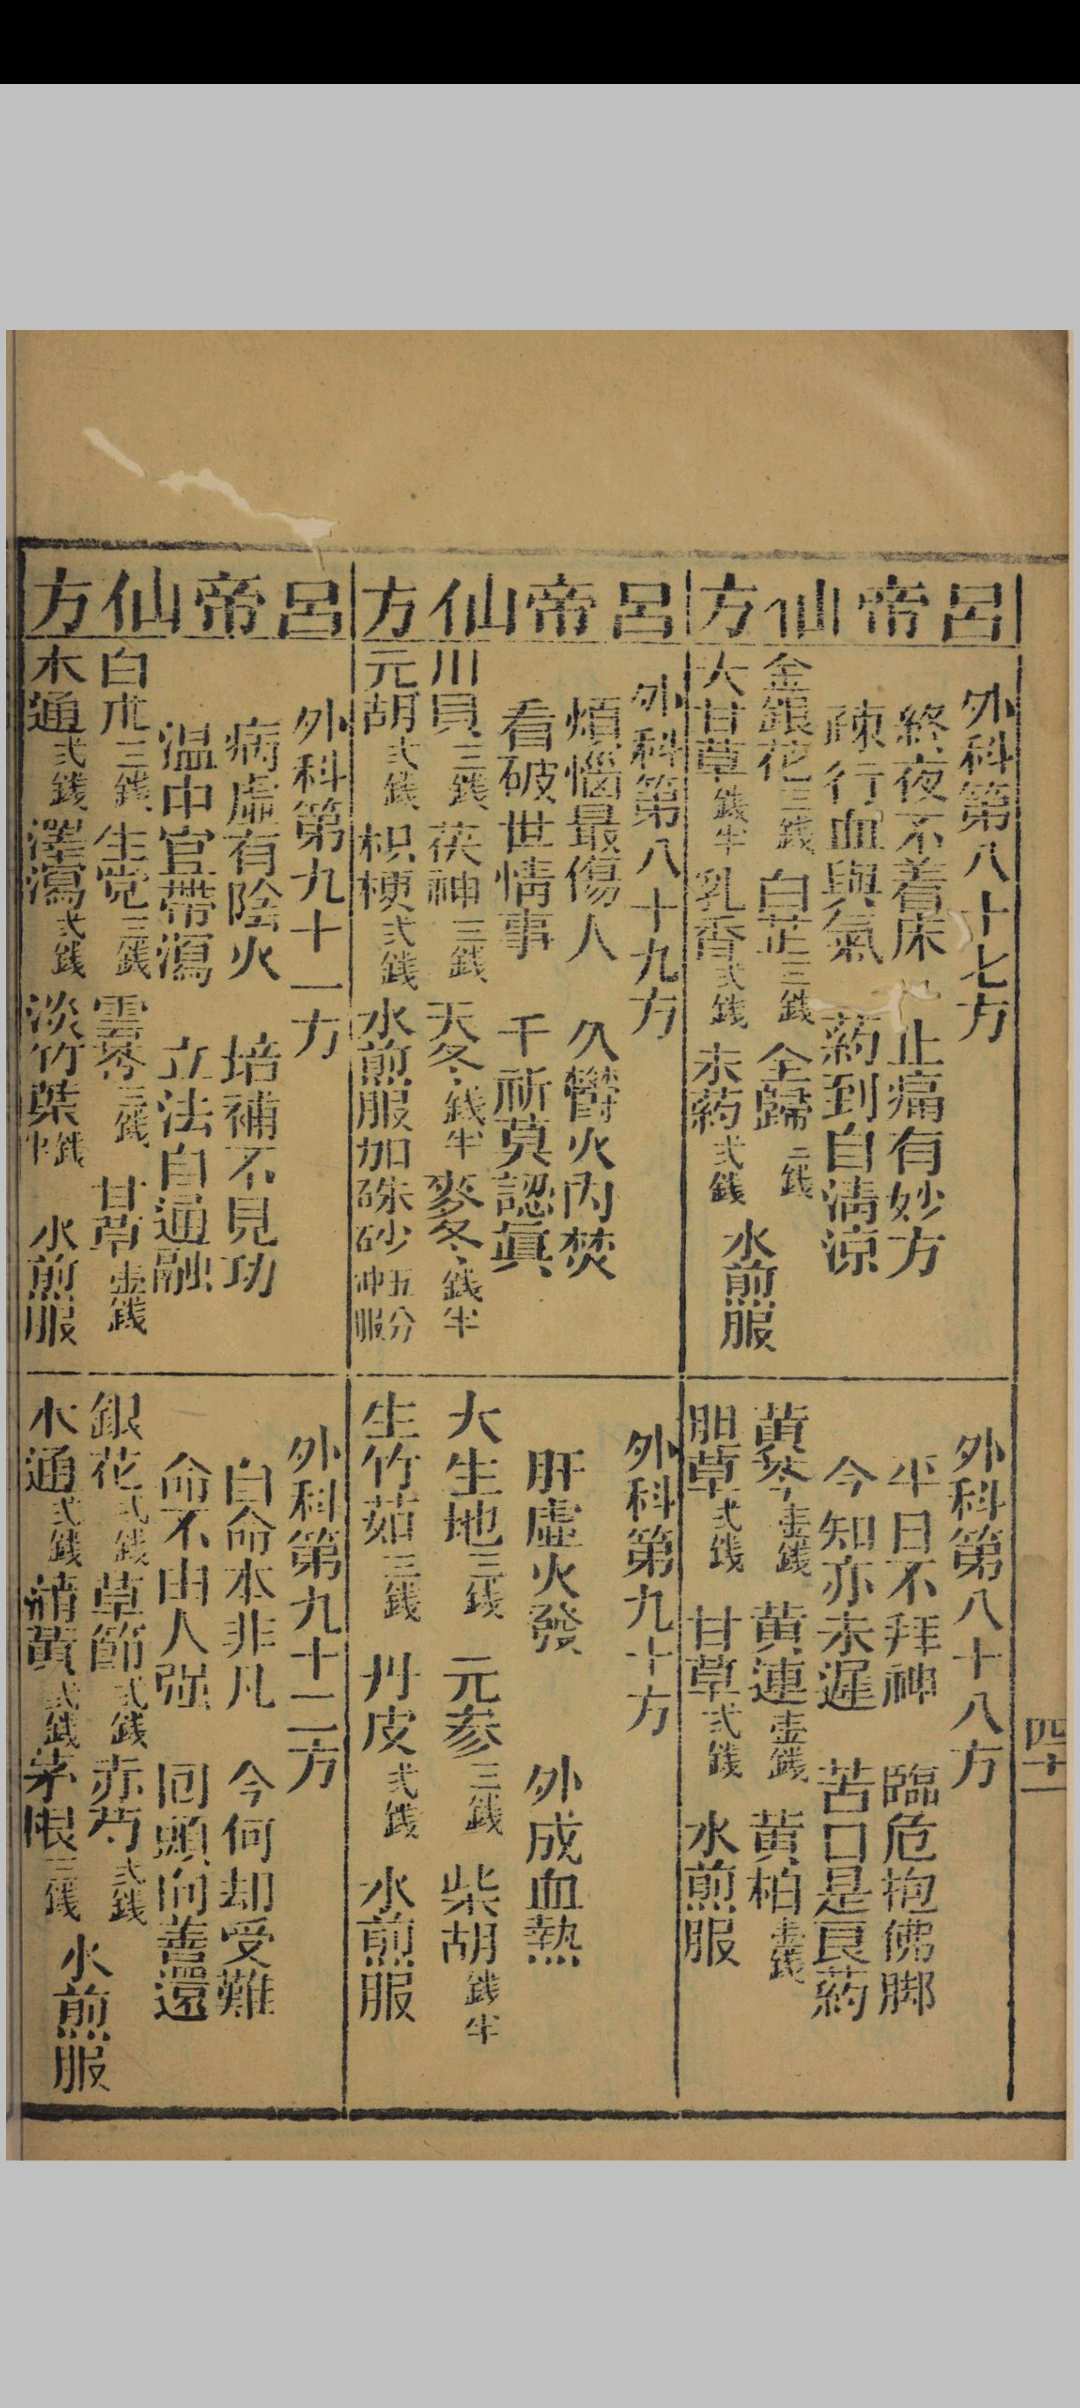 呂帝仙方
外科第八十七方
終夜不着床 止痛有妙方
疎行血與氣 葯到自清涼
金銀花三錢 白芷三錢 全歸二錢
大甘草錢半 乳香弍錢 末葯弍錢 水煎服
外科第八十八方
平日不拜神 臨危抱佛脚
今知亦未遲 苦口是良葯
黄芩壹錢 黄連壹錢 黄柏壹錢
胆草弍錢 甘草弍錢 水煎服
四十一
呂帝仙方
外科第八十九方
煩惱最傷人 久鬱火内焚
看破世情事 千祈莫認眞
川貝三錢 茯神三錢 天冬錢半 麥冬錢半
元胡弍錢 枳梗弍錢 水煎服加硃砂五分冲服
外科第九十方
肝虛火發 外成血熱
大生地三錢 元参三錢 柴胡錢半
生竹茹三錢 丹皮弍錢 水煎服
呂帝仙方
外科第九十一方
病虛有陰火 培補不見功
温中宜帶瀉 立法自通融
白朮三錢 生党三錢 雲苓三錢 甘草壹錢
木通弍錢 澤瀉弍錢 淡竹葉錢半 水煎服
外科第九十二方
白命本非凡 今何却受難
命不由人强 回頭向善還
銀花弍錢 草節弍錢 赤芍弍錢
木通弍錢 蒲黄弍錢 茅根三錢 水煎服